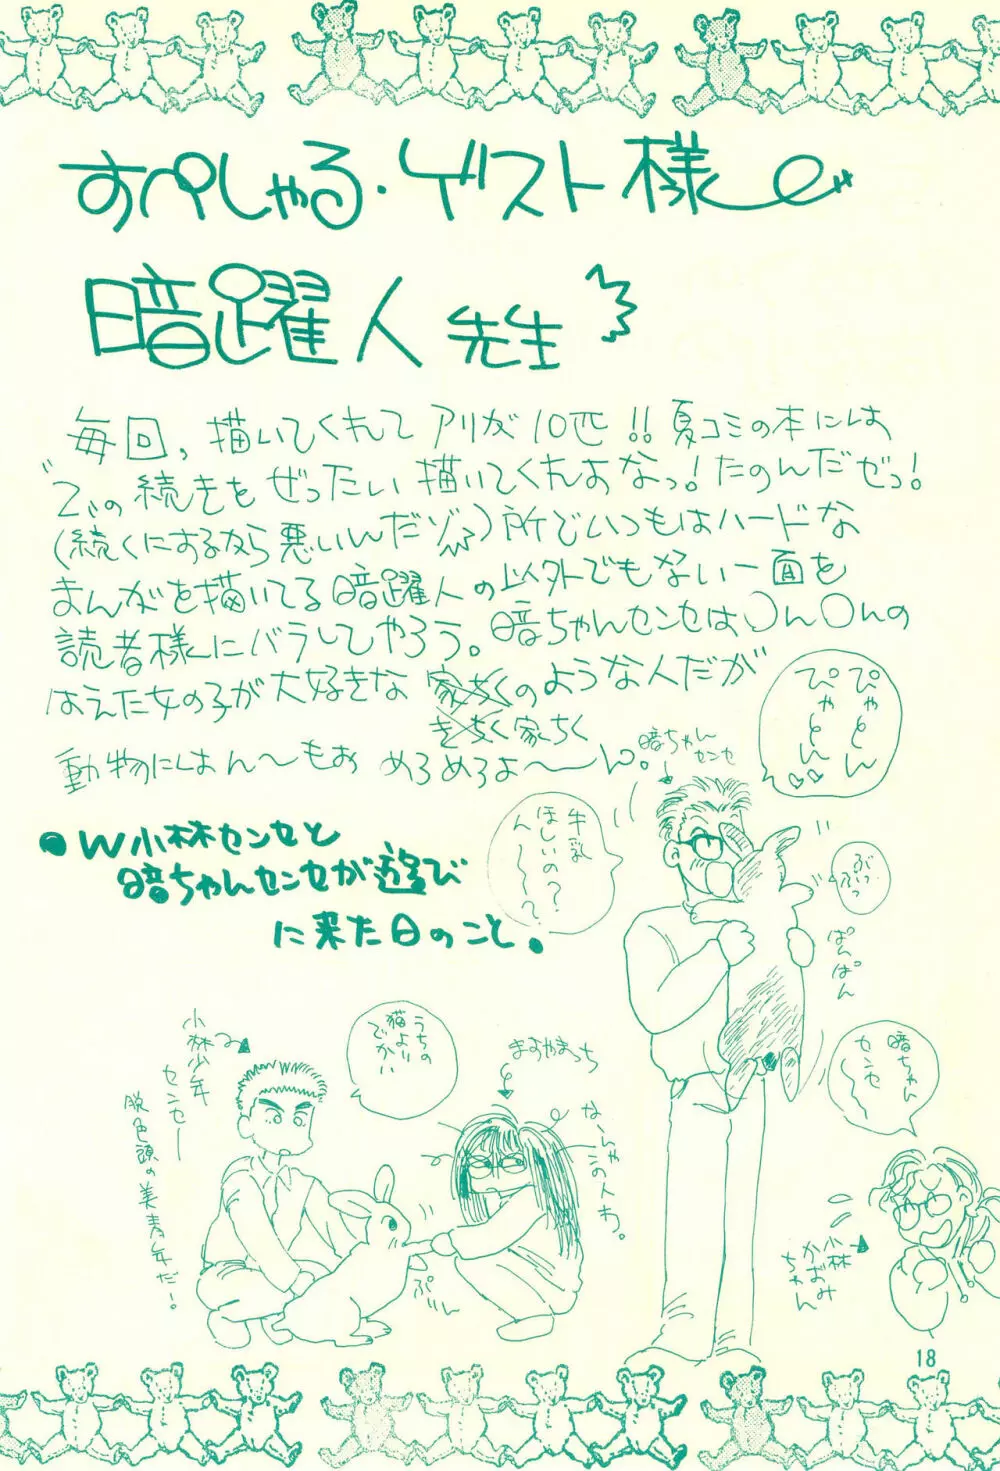 すぺしゃる・ゲスト様
暗躍人先生
毎回,描いてくれてアリが10匹!!夏コミの本には
"乙"の続きをぜったい描いてくれよなっ!たのんだぜっ!
(続くにするなら悪いんだゾ)所でいつもはハードな
まんがを描いてる暗躍人の以外でもない一面を
読者様にバラしてやろう。暗ちゃんセンセは〇ん〇んの
はえた女の子が大好きな家ちくのような人だが
きちく家ちく
動物にはん〜もぉめろめろよ〜ん。
暗ちゃんセンセ
ぴゃとん
ぴゃとん
●W小林センセと
暗ちゃんセンセが遊び
に来た日のこと。
牛乳
ほしいの?
ん〜〜?
ぶっ
ぶっ
ぱんぱん
暗ちゃん
センセ〜
小林
かおみ
ちゃん
うちの
猫より
でかい
まるやまっち
な〜んやこの人わ。
小林少年
センセー
脱色頭の美青年だ!
ぷに
18